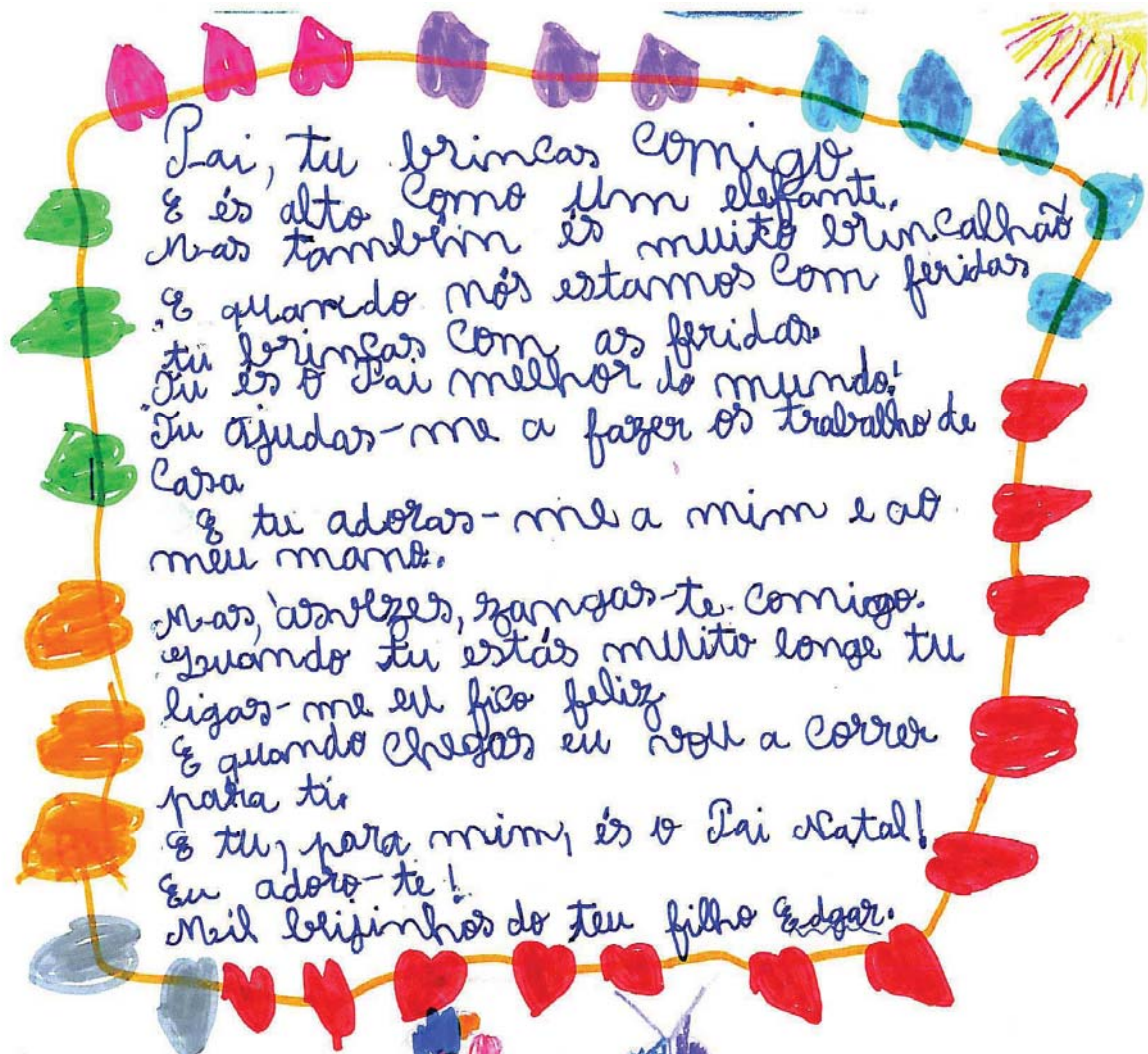 Pai, tu brincas comigo
E és alto como um elefante.
Mas também és muito brincalhão
E quando nós estamos com feridas
tu brincas com as feridas.
Tu és o Pai melhor do mundo!
Tu ajudas-me a fazer os trabalho de
Casa
E tu adoras-me a mim e ao
meu mano.
Mas, àsvezes, zangas-te comigo.
Quando tu estás muito longe tu
ligas-me eu fico feliz
E quando chegas eu vou a correr
para ti.
E tu, para mim, és o Pai Natal!
Eu adoro-te!
Mil beijinhos do teu filho Edgar.